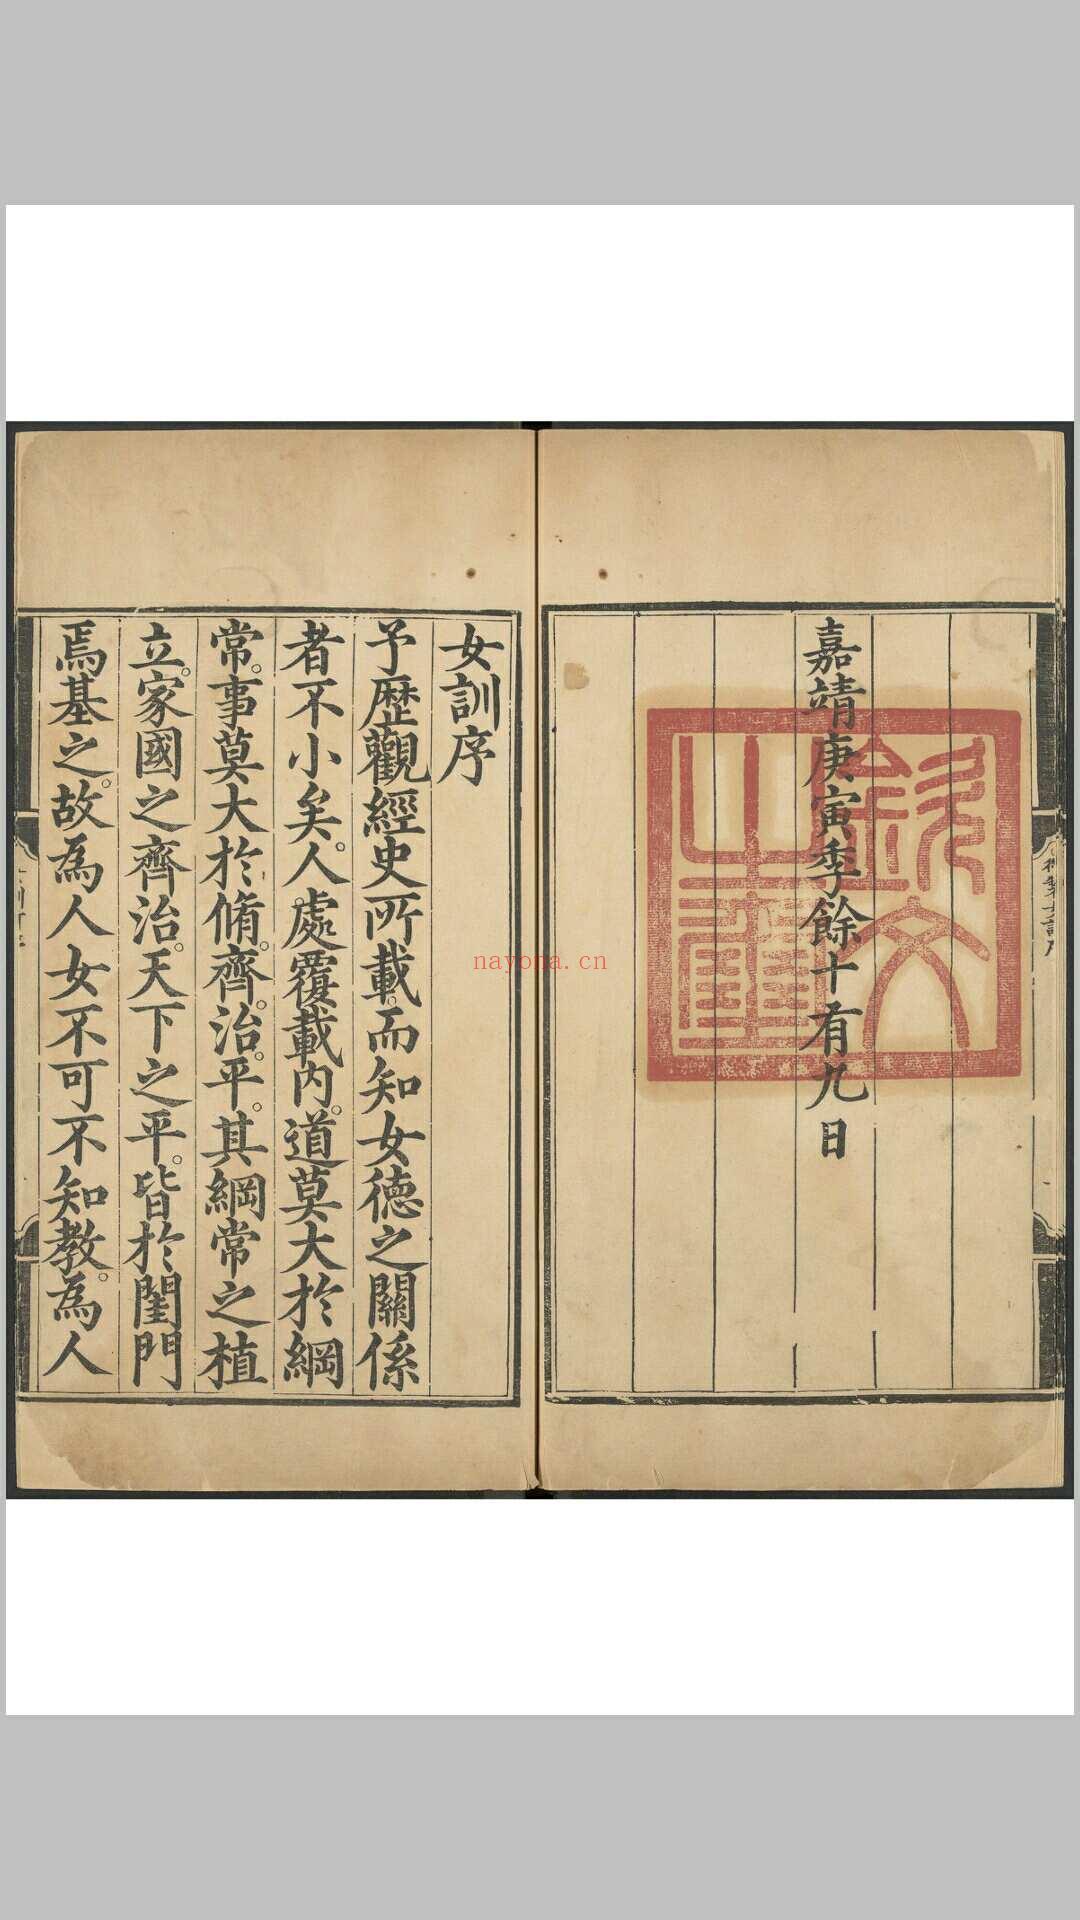 嘉靖庚寅季餘十有九日
欽文之璽
女訓序
予歷觀經史所載。而知女德之關係
者不小矣。人處覆載內。道莫大於綱
常。事莫大於脩。齊。治。平。其綱常之植
立。家國之齊治。天下之平。皆於閨門
焉基之。故為人女不可不知教。為人
nayona.cn